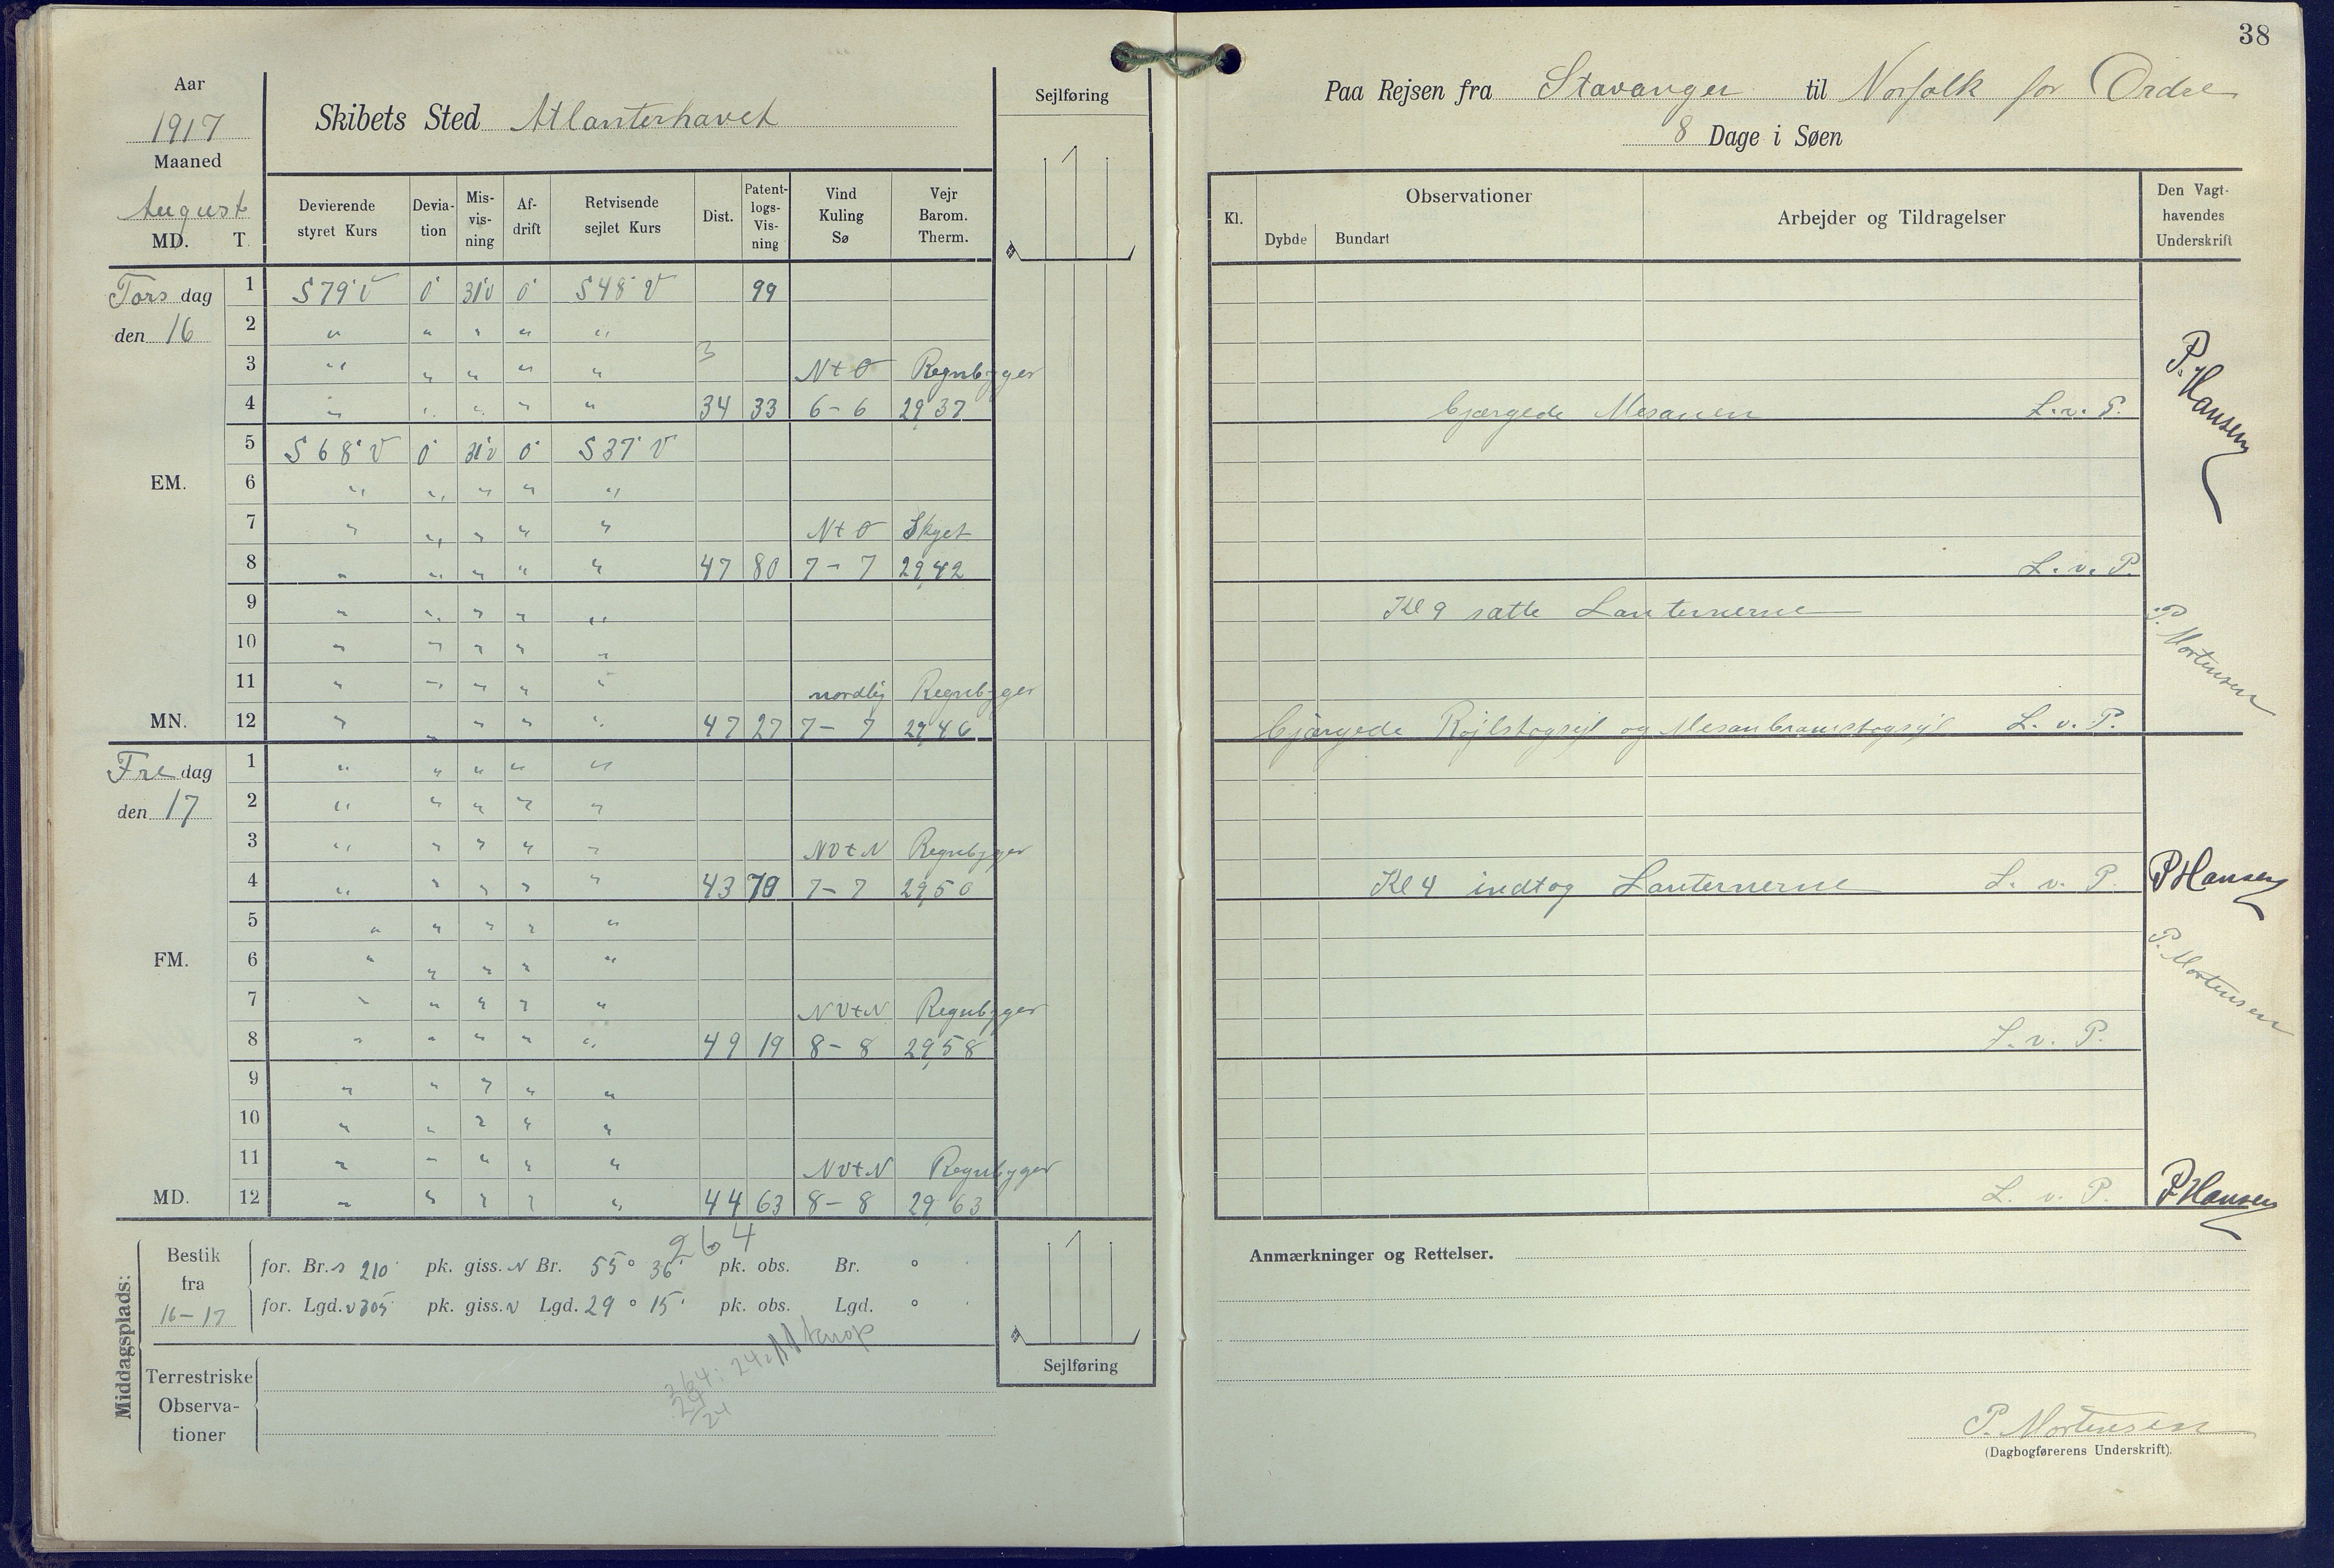 38
Aar
1917
Maaned
August
MD. T.
Skibets Sted Atlanterhavet
Sejlføring
Devierende styret Kurs | Devia-tion | Mis-vis-ning | Af-drift | Retvisende sejlet Kurs | Dist. | Patent-logs-Vis-ning | Vind Kuling Sø | Vejr Barom. Therm.
Tors dag 1 S 79° V 0° 31°V 0° S 48° V 99
den 16 2 " " " " "
3 " " " " " N t O Regnbyger
4 " " " " " 34 33 6 - 6 29,37
5 S 68° V 0° 31°V 0° S 37° V
EM. 6 " " " " "
7 " " " " " N t O Skyet
8 " " " " " 47 80 7 - 7 29,42
9 " " " " "
10 " " " " "
11 " " " " " nordlig Regnbyger
MN. 12 " " " " " 47 27 7 - 7 29,46
Fre dag 1 " " " " "
den 17 2 " " " " "
3 " " " " " NV t N Regnbyger
4 " " " " " 43 70 7 - 7 29,50
5 " " " " "
FM. 6 " " " " "
7 " " " " " NV t N Regnbyger
8 " " " " " 49 19 8 - 8 29,58
9 " " " " "
10 " " " " "
11 " " " " " NV t N Regnbyger
MD. 12 " " " " " 44 63 8 - 8 29,63
264
Middagsplads:
Bestik fra 16 - 17
for. Br. S 210' pk. giss. N Br. 55° 36' pk. obs. Br. °
for. Lgd. V 305' pk. giss. V Lgd. 29° 15' pk. obs. Lgd. °
Terrestriske
Observa-
tioner
264: 24
24
24
Sejlføring
Paa Rejsen fra Stavanger til Norfolk for Ordre
8 Dage i Søen
Kl. | Observationer | Dybde | Bundart | Arbejder og Tildragelser | Den Vagt-havendes Underskrift
P. Hansen
bjærgede Mesanen L. v. P.
L. v. P.
Kl 9 satte Lanternerne
P. Mortensen
bjærgede Röjlstagsejl og Mesanbramstagsejl L. v. P.
Kl 4 indtog Lanternerne L. v. P. P Hansen
P. Mortensen
L. v. P.
L. v. P. P Hansen
Anmærkninger og Rettelser.
P. Mortensen
(Dagbogførerens Underskrift).